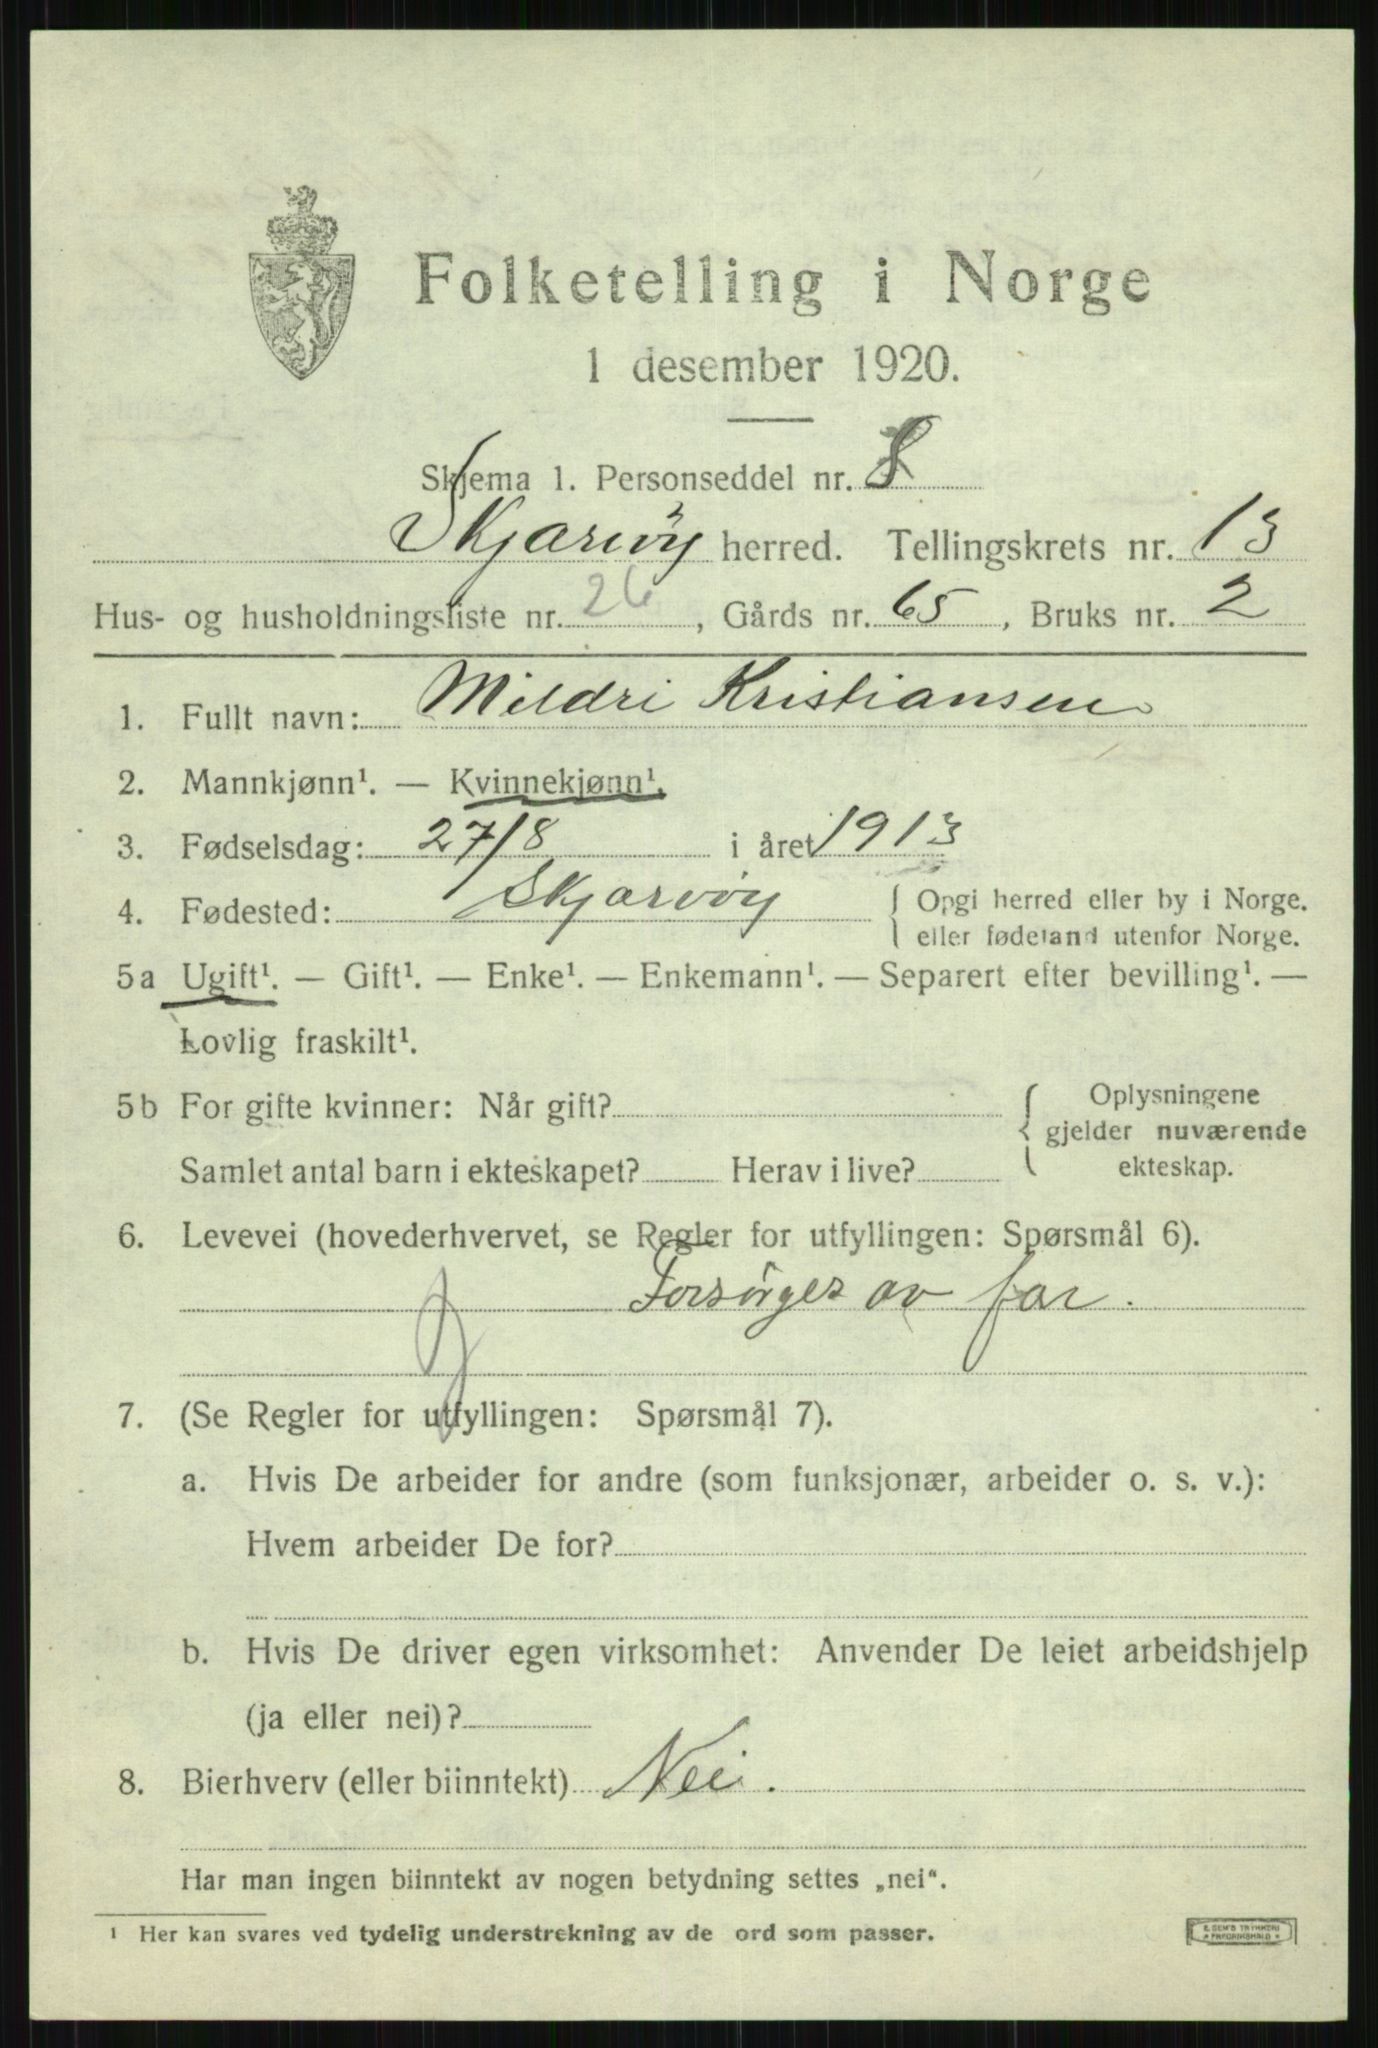 Folketelling i Norge
1 desember 1920.
Skjema 1. Personseddel nr. 8
Skjærvøy herred. Tellingskrets nr. 13
Hus- og husholdningsliste nr. 26, Gårds nr. 65, Bruks nr. 2
1. Fullt navn: Mildri Kristiansen
2. Mannkjønn¹. — Kvinnekjønn¹.
3. Fødselsdag: 27/8 i året 1913
4. Fødested: Skjærvøy { Opgi herred eller by i Norge.
eller fødeland utenfor Norge.
5a Ugift¹. — Gift¹. — Enke¹. — Enkemann¹. — Separert efter bevilling¹. —
Lovlig fraskilt¹.
5b For gifte kvinner: Når gift? { Oplysningene
gjelder nuværende
Samlet antal barn i ekteskapet? Herav i live? ekteskap.
6. Levevei (hovederhvervet, se Regler for utfyllingen: Spørsmål 6).
Forsørges av far.
7. (Se Regler for utfyllingen: Spørsmål 7).
a. Hvis De arbeider for andre (som funksjonær, arbeider o. s. v.):
Hvem arbeider De for?
b. Hvis De driver egen virksomhet: Anvender De leiet arbeidshjelp
(ja eller nei)?
8. Bierhverv (eller biinntekt) Nei.
Har man ingen biinntekt av nogen betydning settes „nei“.
¹ Her kan svares ved tydelig understrekning av de ord som passer.